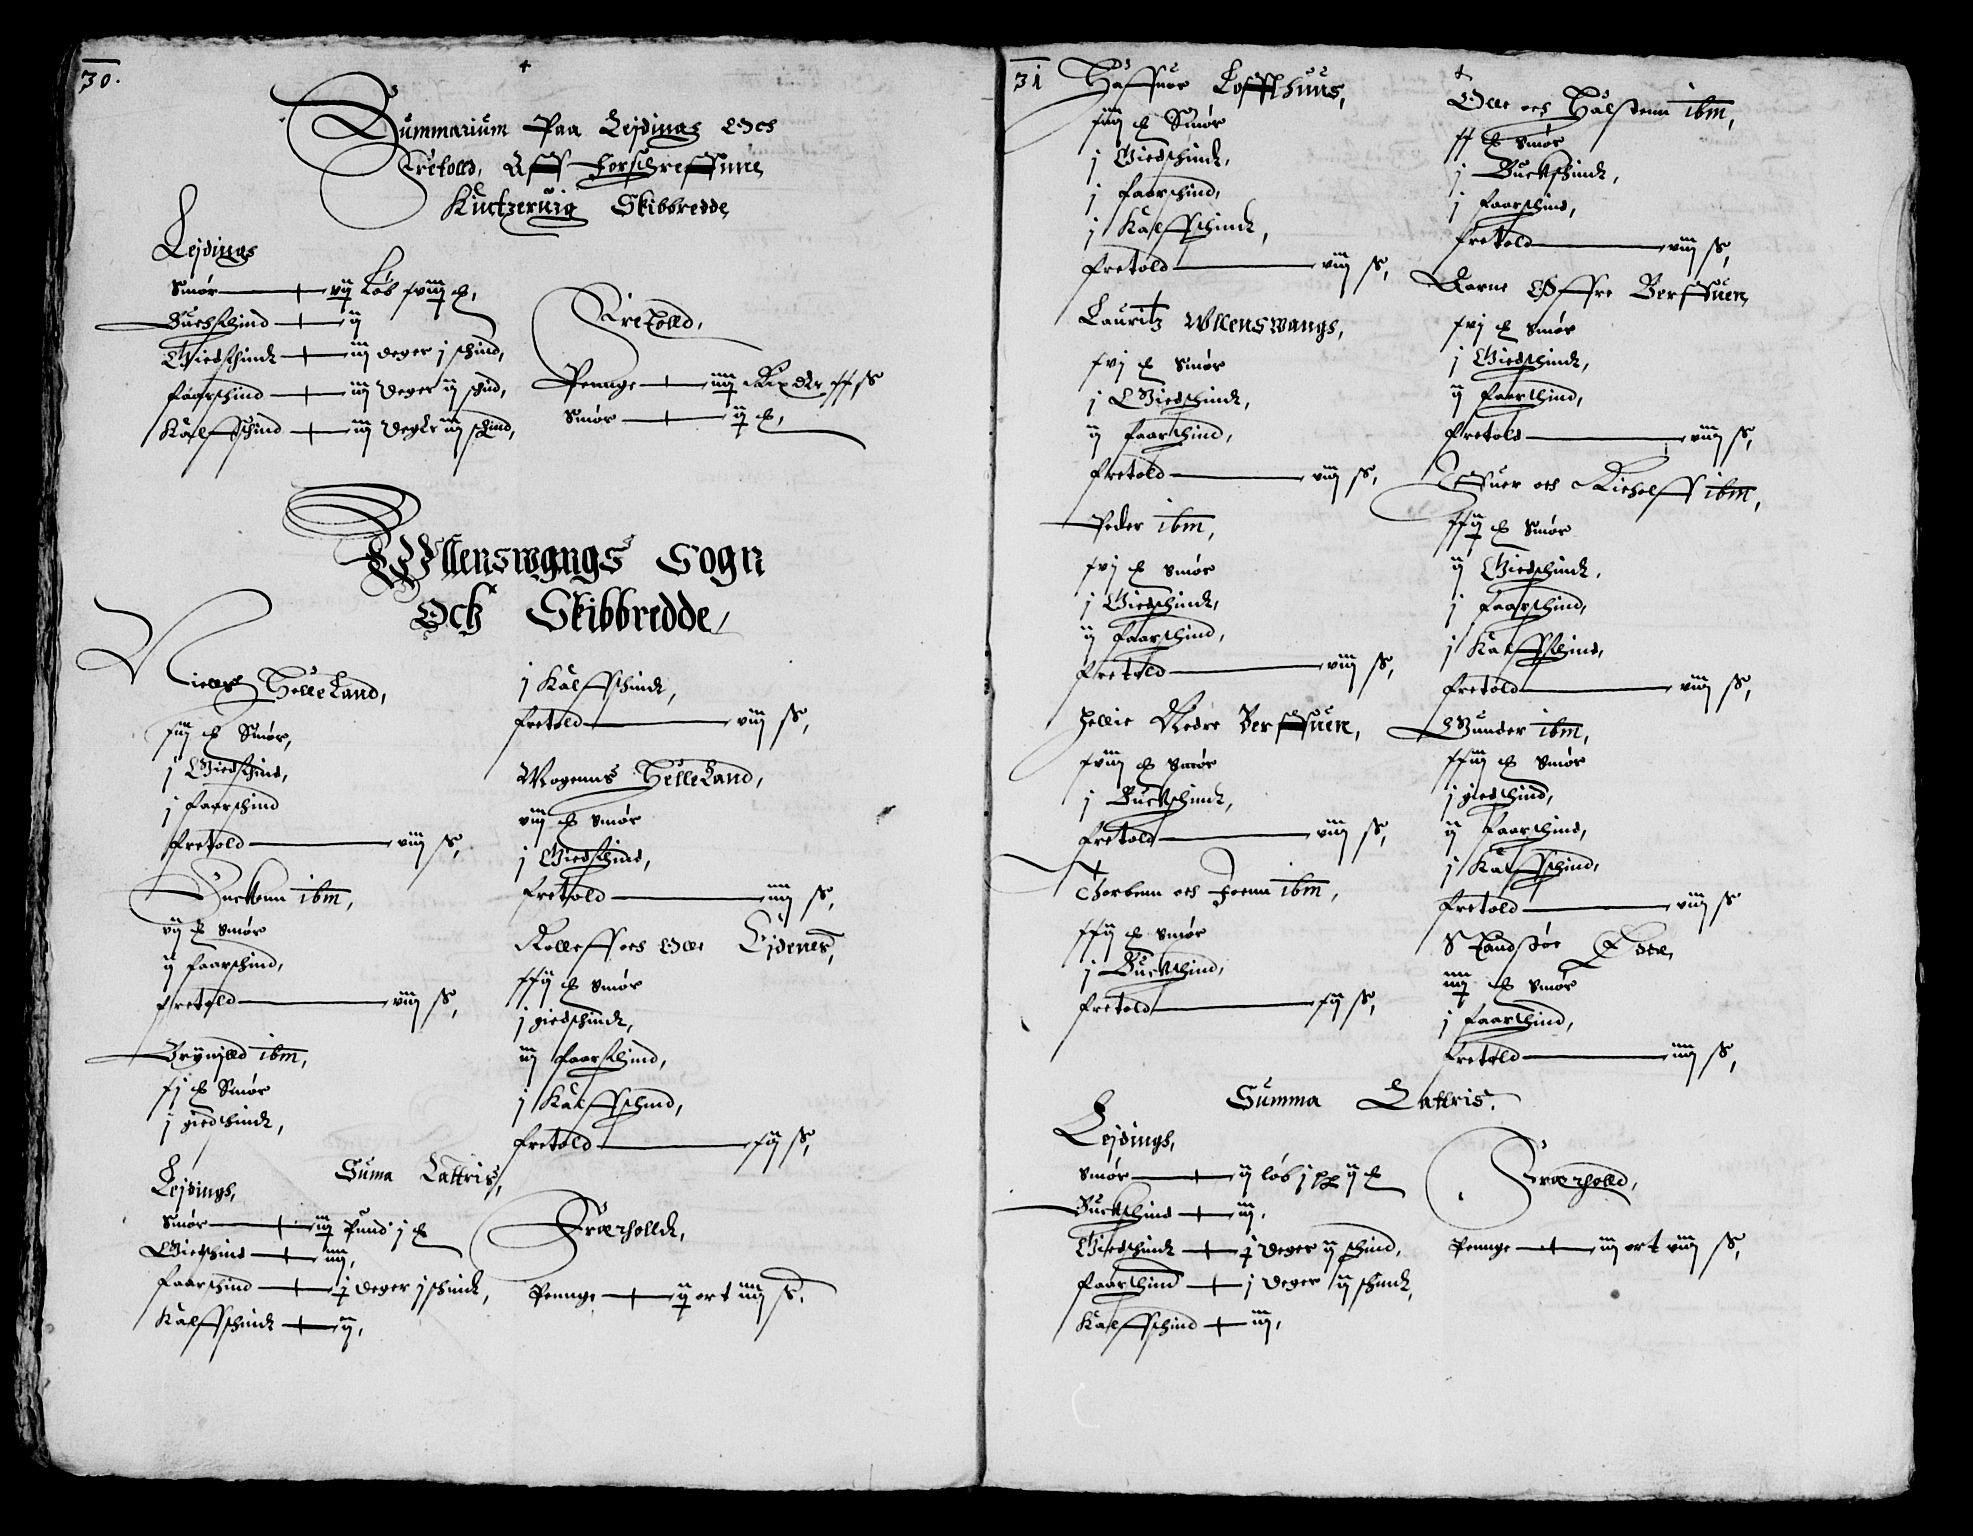 30.
Summarium Paa Lejdings Och
Fretolld, Aff forschreffne
Kintzeruig Skibbredde
Lejdings
Smør — vij Løb xviij ℔,
Buckschind — ij
Giedschindt — iij deger j schind,
faarschind — iij deger ij schind,
Kalffschind — iij deger iij schind,
Fretolld,
Penge — iiij Rix dlr xx ß
Smør — ij ℔,
Wllenswangs Sogn
Och Skibbredde,
Niells Helleland,
xiij ℔ Smør,
j Giedschind,
j faarschind
fretold — viij ß,
ibm,
vij ℔ smør
ij faarschind,
fretold — viij ß,
Brynild ibm,
xj ℔ Smør
j giedschindt,
j Kalffschindt,
fretold — viij ß,
Mogenns Helleland,
viij ℔ smør
j Giedschind,
fretold — iiij ß,
Rolleff och Olle Ejdenes,
xxij ℔ smør
j giedschindt,
iij faarschind,
j Kalffschind,
fretold — xij ß,
Suma Lattris,
Lejdings,
Smør — iij Pund j ℔
Giedschind — iiij,
faarschind — j deger j schindt,
Kalffschindt — ij,
Fræetolldt,
Penge — ij ort iiij ß.
31
Haffuor Loffthuus,
xiij ℔ Smør
j Giedschindt,
j faarschind,
j Kalffschindt,
fretold — viij ß,
Lauritz Wllenswangs,
xvj ℔ smør
j Giedschindt,
ij faarschind,
fretold — viij ß,
Peder ibm,
xvj ℔ smør
j Giedschindt,
ij faarschind,
fretold — viij ß,
Hellie Nedre Berffuen,
xviij ℔ smør
j Buckschindt,
fretold — viij ß,
Thorbenn och ibm,
xxij ℔ smør
j Buckschind,
fretold — xij ß,
Olle och Halstenn ibm,
xx ℔ smør
j Buckschindt,
j faarschind,
fretold — viij ß,
Aarne Øffre Berffuen,
xvj ℔ smør
j Giedschindt,
ij faarschind,
fretold — viij ß,
Iffuer och Richolff ibm,
xxij ℔ smør
ij Giedschindt,
j faarschind,
j Kalffschind,
fretold — viij ß,
Gunder ibm,
xxiij ℔ smør
j giedschind,
ij faarschind,
j Kalffschind,
fretold — viij ß
iiij ℔ smør
j faarschind,
fretold — iiij ß,
Summa Lattris.
Lejdings,
smør — ij løb j pd ij ℔
Buckschind — iij,
Giedschindt — j deger ij schind,
faarschind — j deger ij schindt,
Kalffschind — iij,
Fræetolld,
Penge — iij ort viij ß,